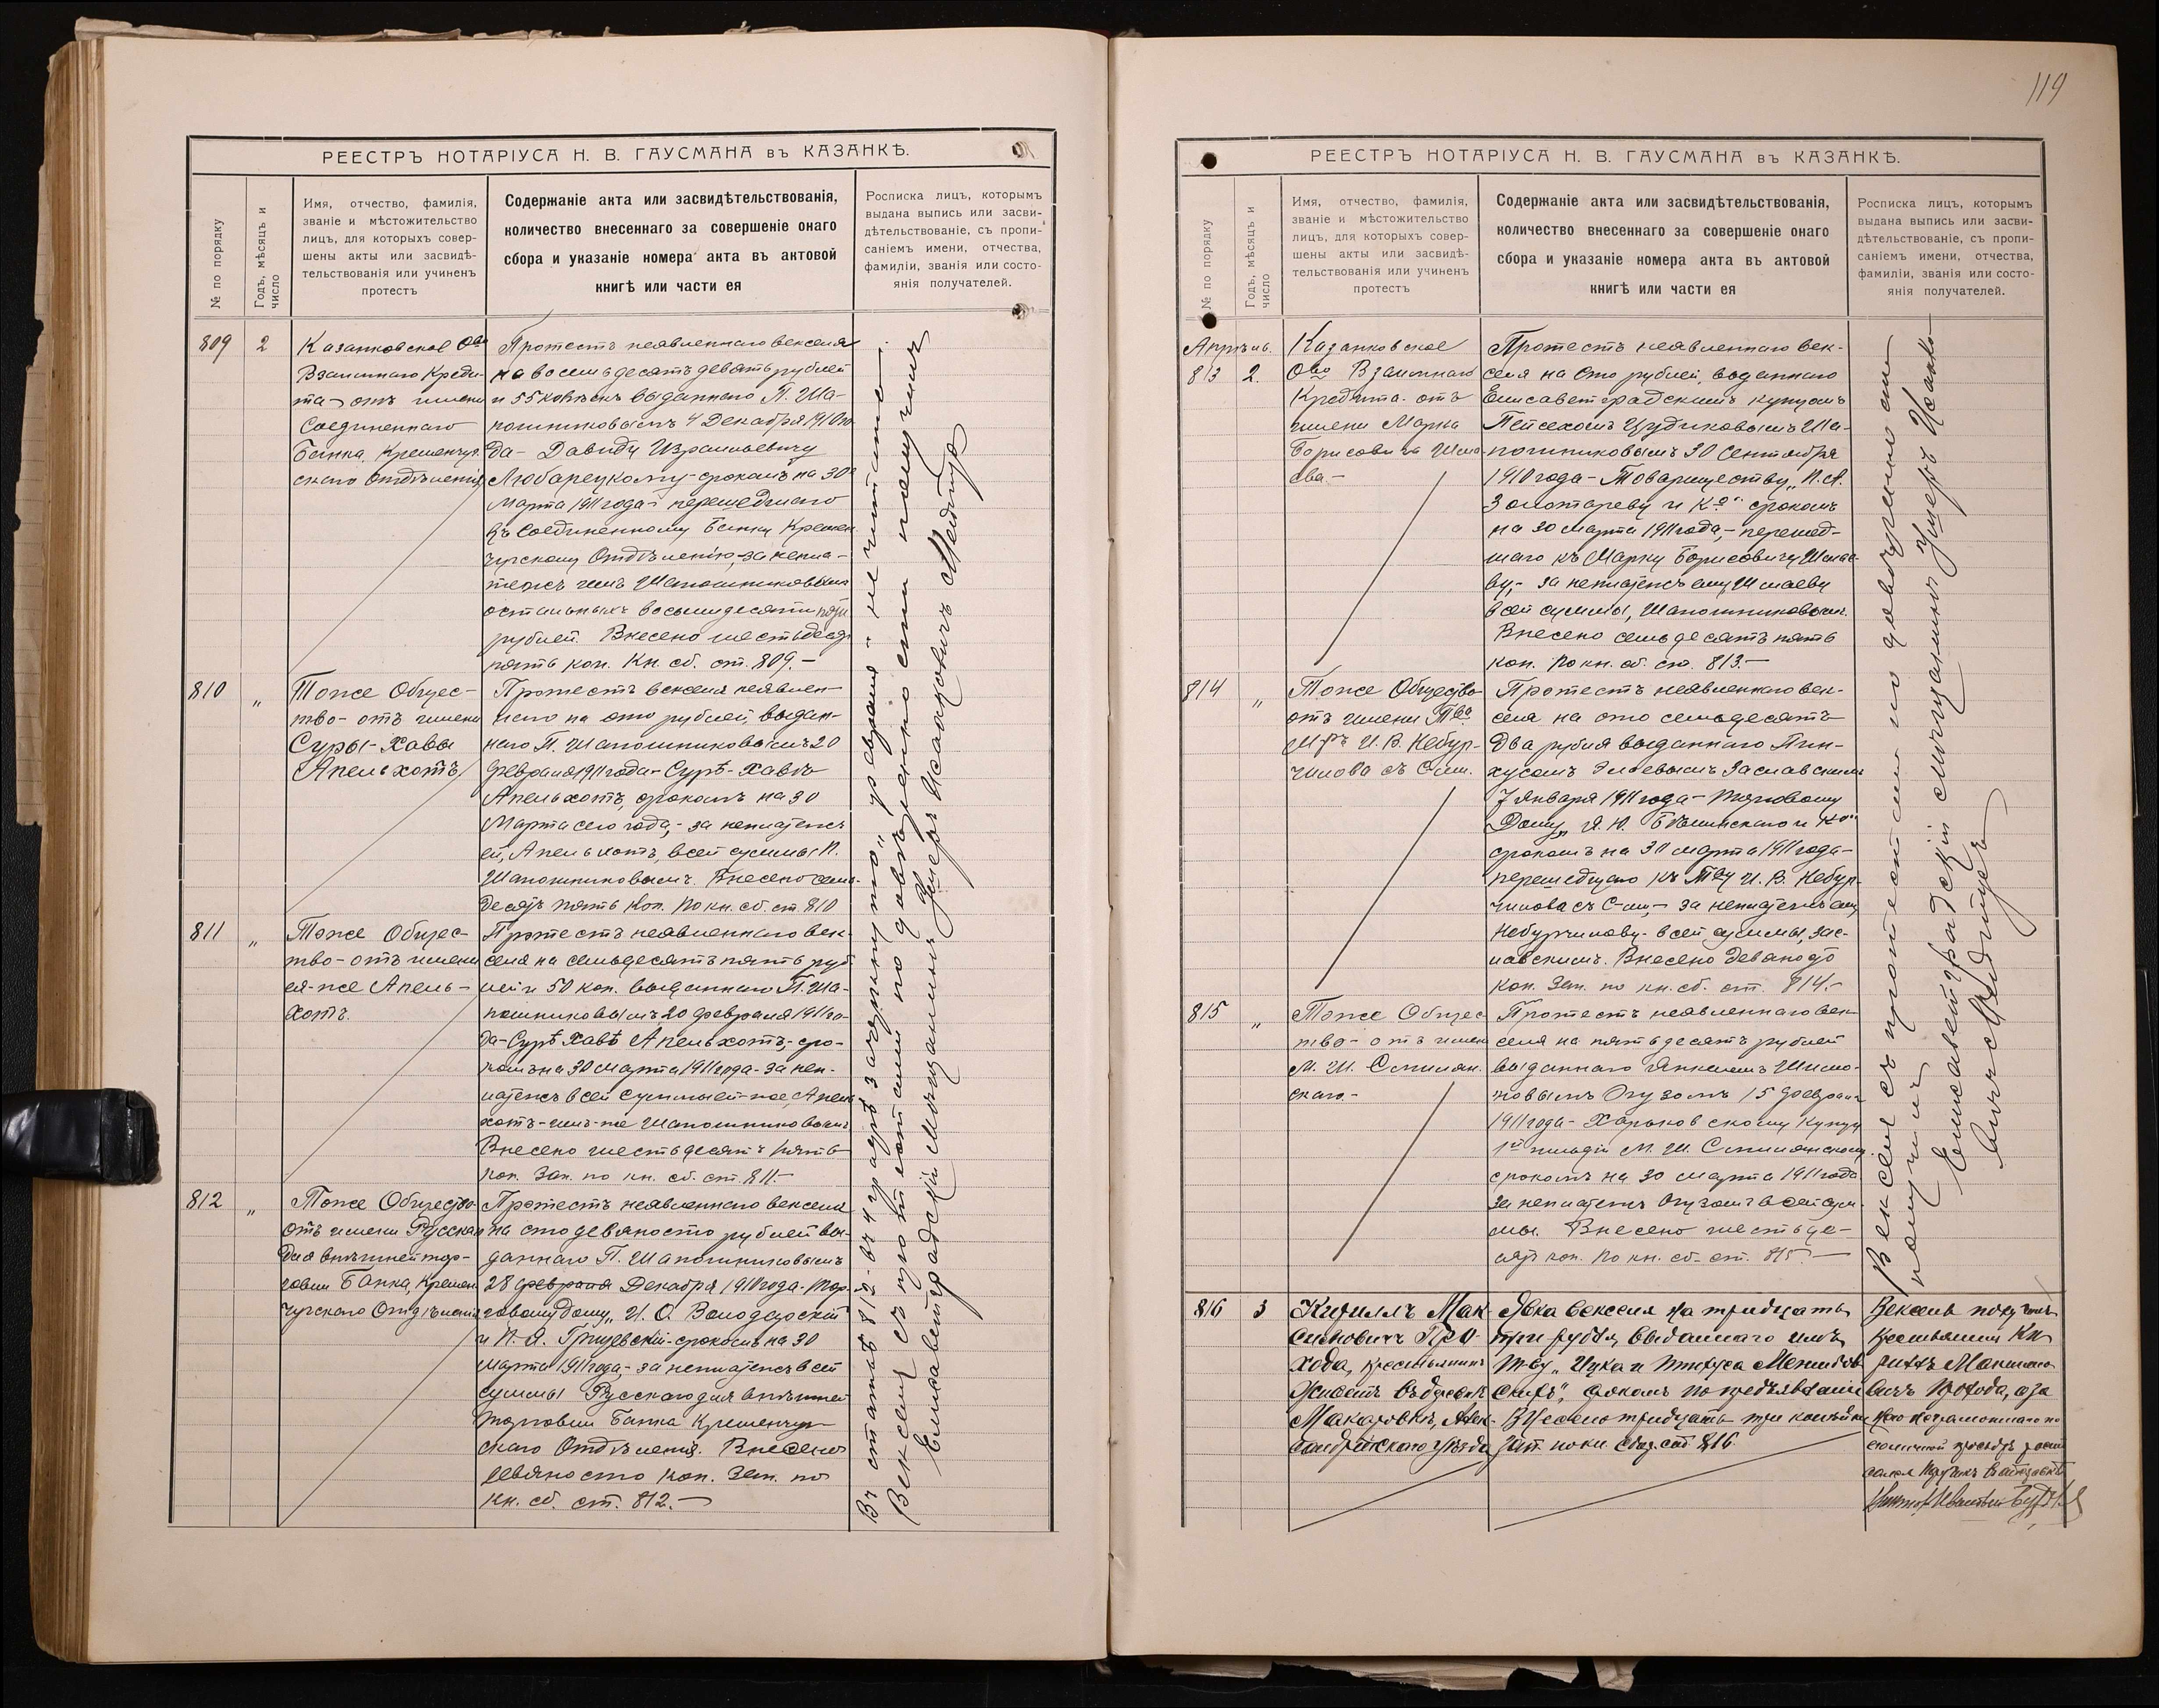 РЕЕСТРЪ НОТАРІУСА Н. В. ГАУСМАНА въ КАЗАНКѢ.
№ по порядку
Годъ, мѣсяцъ и
число
Имя, отчество, фамилія,
званіе и мѣстожительство
лицъ, для которыхъ совер-
шены акты или засвидѣ-
тельствованія или учиненъ
протестъ
Содержаніе акта или засвидѣтельствованія,
количество внесеннаго за совершеніе онаго
сбора и указаніе номера акта въ актовой
книгѣ или части ея
Росписка лицъ, которымъ
выдана выпись или засви-
дѣтельствованіе, съ пропи-
саніемъ имени, отчества,
фамиліи, званія или состо-
янія получателей.
809
2
Казанковское Ово
Взаимнаго Креди-
та - отъ имени
Соединеннаго
Банка, Кременчуг-
скаго Отдѣленія
Протестъ неявленнаго векселя
на восемьдесятъ девять рублей
и 55 копѣекъ выданнаго П. Ша-
пошниковымъ 4 Декабря 1910 го-
да - Давиду Израильевичу
Любарецкому - срокомъ на 30
Марта 1911 года - перешедшаго
къ Соединенному Банку Кремен-
чугскому Отдѣленію, за непла-
тежъ имъ Шапошниковымъ
остальныхъ восьмидесяти
рублей. Внесено шестьдесятъ
пять коп. Кн. сб. ст. 809. -
810
"
Тоже Общес-
тво - отъ имени
Суры-Хавы
Апельхотъ
Протестъ векселя неявлен-
наго на сто рублей, выдан-
наго П. Шапошниковымъ 20
февраля 1911 года - Сурѣ-Хавѣ
Апельхотъ, срокомъ на 30
Марта сего года, - за неплатежъ
ей, Апельхотъ, всей суммы П.
Шапошниковымъ. Внесено семь-
десятъ пять коп. По кн. сб. ст. 810
811
"
Тоже Общес-
тво - отъ имени
ея-же Апель-
хотъ.
Протестъ неявленнаго век-
селя на семьдесятъ пять руб-
лей и 50 коп. выданнаго П. Ша-
пошниковымъ 20 февраля 1911 го-
да - Сурѣ Хавѣ Апельхотъ, - сро-
комъ на 30 марта 1911 года - за неп-
латежъ всей суммы ей-же, Апель-
хотъ - имъ-же Шапошниковымъ
Внесено шестьдесятъ пять
коп. Зап. по кн. сб. ст. 811. -
812
"
Тоже Общество
отъ имени Русскаго
для внѣшней тор-
говли Банка, Кремен-
чугскаго Отдѣленія
Протестъ неявленнаго векселя
на сто девяносто рублей вы-
даннаго П. Шапошниковымъ
28 февраля Декабря 1910 года - Тор-
говому Дому "И. О. Володарскій
и П. Я. Грищевскій - срокомъ на 30
марта 1911 года, - за неплатежъ всей
суммы Русскаго для внѣшней
торговли Банка Кременчуг-
скаго Отдѣленія. Внесено
девяносто коп. Зап. по
кн. сб. ст. 812. -
Въ статьѣ 812 - въ 4 графѣ зачеркнуто: "февраля" - не читать.
Векселя съ протестами по довѣренности получилъ
Елисаветградскій Мѣщанинъ Ушеръ Исааковичъ Мейдингъ
119
РЕЕСТРЪ НОТАРІУСА Н. В. ГАУСМАНА въ КАЗАНКѢ.
№ по порядку
Годъ, мѣсяцъ и
число
Имя, отчество, фамилія,
званіе и мѣстожительство
лицъ, для которыхъ совер-
шены акты или засвидѣ-
тельствованія или учиненъ
протестъ
Содержаніе акта или засвидѣтельствованія,
количество внесеннаго за совершеніе онаго
сбора и указаніе номера акта въ актовой
книгѣ или части ея
Росписка лицъ, которымъ
выдана выпись или засви-
дѣтельствованіе, съ пропи-
саніемъ имени, отчества,
фамиліи, званія или состо-
янія получателей.
Апрѣль.
813
2.
Казанковское
Ово Взаимнаго
Кредита - отъ
имени Марка
Борисовича Шма
ева -
Протестъ неявленнаго век-
селя на Сто рублей, выданнаго
Елисаветградскимъ купцомъ
Пейсехомъ Іудиковымъ Ша-
пошниковымъ 30 Сентября
1910 года - Товариществу "П. А.
Золотареву и Ко" срокомъ
на 30 марта 1911 года, - перешед-
шаго къ Марку Борисовичу Шмае-
ву, - за неплатежъ ему, Шмаеву
всей суммы, Шапошниковымъ.
Внесено семьдесятъ пять
коп. По кн. сб. ст. 813. -
814
"
Тоже Общество
отъ имени Тва
И. В. Небур-
чилова съ С-ми.
Протестъ неявленнаго век-
селя на сто семьдесятъ
два рубля выданнаго Пин-
хусомъ Заславскимъ
7 января 1911 года - Торговому
Дому "Я. Ю. и Ко"
срокомъ на 30 марта 1911 года -
перешедшаго къ Тву И. В. Небур-
чилова съ С-ми, - за неплатежъ ему,
Небурчилову - всей суммы, Зас-
лавскимъ. Внесено девяносто
коп. Зап. по кн. сб. ст. 814. -
815
"
Тоже Общес
тво - отъ имени
М. Ш. Смилян-
скаго. -
Протестъ неявленнаго век-
селя на пятьдесятъ рублей
выданнаго Янкелемъ Шимо-
новымъ Огузомъ 15 февраля
1911 года - Харьковскому Купцу
1й гильдіи М. Ш. Смилянскому
срокомъ на 30 марта 1911 года
за неплатежъ Огузомъ всей сум-
мы. Внесено шестьде-
сятъ коп. По кн. сб. ст. 815. -
Векселя съ протестами по довѣренности
получилъ
Елисаветградскій мѣщанинъ Ушеръ Исаако-
вичъ Мейдингъ
816
3
Кириллъ Мак-
симовичъ Про-
хода, крестьянинъ
живетъ въ деревнѣ
Макаровкѣ, Алек-
сандрійскаго уѣзда
Явка векселя на тридцать
три рубля, выданнаго имъ
Тву "Ицка и Пинхуса
", срокомъ по предъявленіи
Внесено тридцать три копѣйки
зап. по кн. сбор. ст. 816
Вексель получилъ
Крестьянинъ Ки-
риллъ Максимо-
вичъ Прохода, а за
него неграмотнаго по
его личной просьбѣ росписался